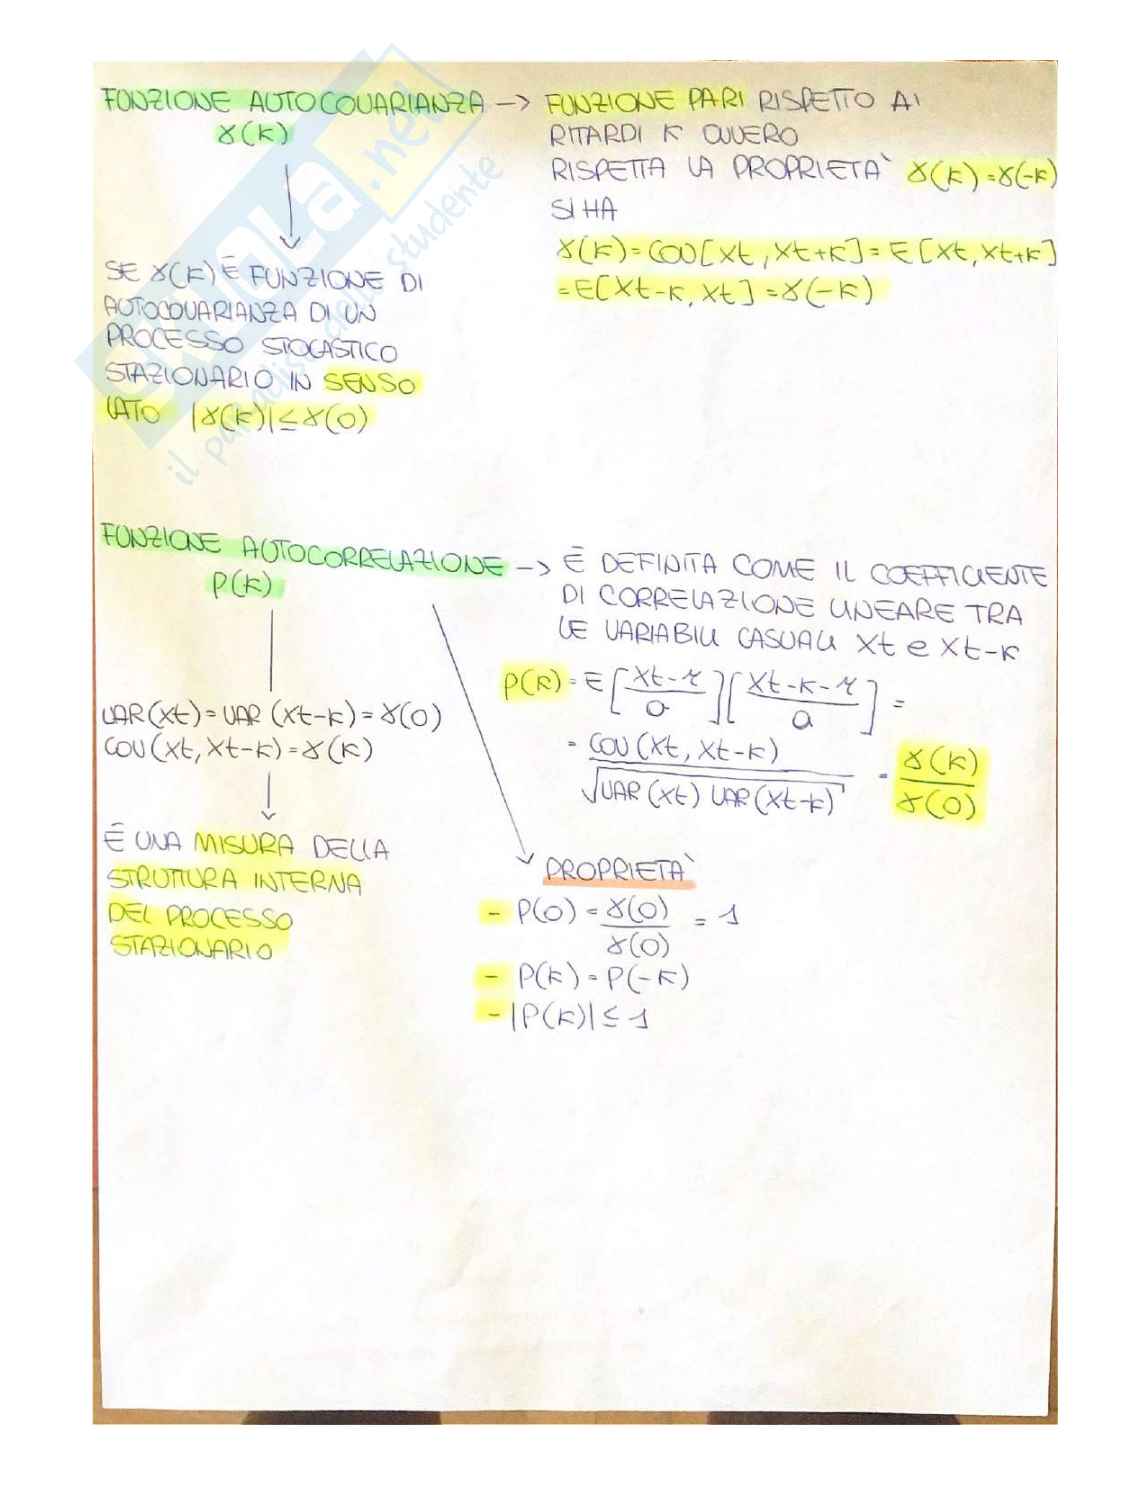 FUNZIONE AUTOCOVARIANZA -> FUNZIONE PARI RISPETTO AI
γ(K)
RITARDI K OVVERO
RISPETTA LA PROPRIETÀ γ(K)=γ(-K)
SI HA
γ(K)=COV[Xt, Xt+K]=E[Xt, Xt+K]
=E[Xt-K, Xt]=γ(-K)
SE γ(K) È FUNZIONE DI
AUTOCOVARIANZA DI UN
PROCESSO STOCASTICO
STAZIONARIO IN SENSO
LATO |γ(K)|≤γ(0)
skuola.net
il paradiso dello studente
FUNZIONE AUTOCORRELAZIONE -> È DEFINITA COME IL COEFFICIENTE
P(K)
DI CORRELAZIONE LINEARE TRA
LE VARIABILI CASUALI Xt e Xt-K
P(K)=E[(Xt-μ)/σ][(Xt-K-μ)/σ]=
=COV(Xt, Xt-K)/√VAR(Xt) VAR(Xt-K) = γ(K)/γ(0)
VAR(Xt)=VAR(Xt-K)=γ(0)
COV(Xt, Xt-K)=γ(K)
È UNA MISURA DELLA
STRUTTURA INTERNA
DEL PROCESSO
STAZIONARIO
PROPRIETÀ
- P(0)=γ(0)/γ(0)=1
- P(K)=P(-K)
- |P(K)|≤1